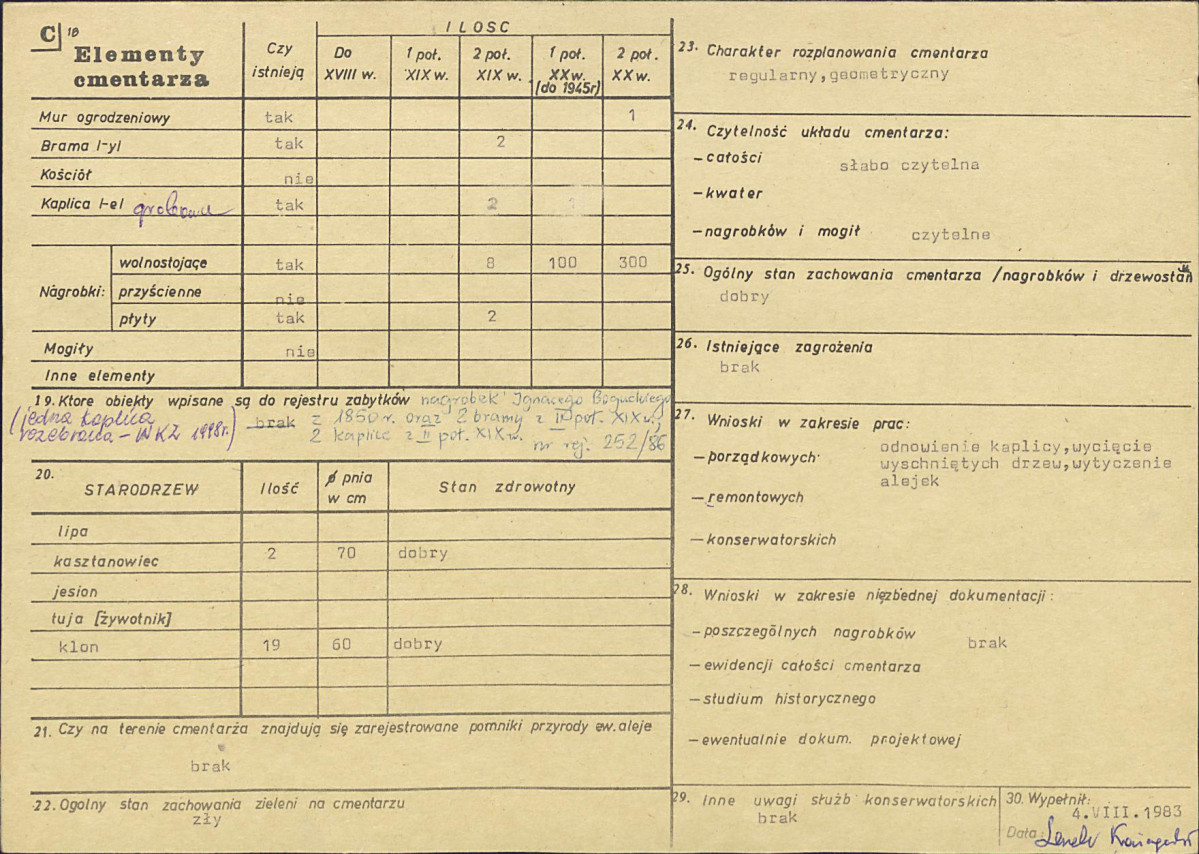 C 18
Elementy cmentarza
Czy istnieją
ILOSC
Do XVIII w.
1 poł. XIX w.
2 poł. XIX w.
1 poł. XX w. (do 1945r)
2 poł. XX w.
Mur ogrodzeniowy tak 1
Brama /-y/ tak 2
Kościół nie
Kaplica /-e/ grobowe tak 2
Nagrobki: wolnostojące tak 8 100 300
przyścienne nie
płyty tak 2
Mogiły nie
Inne elementy
19. Ktore obiekty wpisane są do rejestru zabytków nagrobek Ignacego Boguckiego
(jedna kaplica brak z 1850 r. oraz 2 bramy z II poł. XIX w.,
rozebrana – WKZ 1998r.) 2 kaplice z II poł. XIX w. nr rej. 252/86
20. STARODRZEW Ilość ø pnia w cm Stan zdrowotny
lipa
kasztanowiec 2 70 dobry
jesion
tuja [żywotnik]
klon 19 60 dobry
21. Czy na terenie cmentarża znajdują się zarejestrowane pomniki przyrody ew. aleje
brak
22. Ogolny stan zachowania zieleni na cmentarzu
zły
23. Charakter rozplanowania cmentarza
regularny,geometryczny
24. Czytelność układu cmentarza:
– całości słabo czytelna
– kwater
– nagrobków i mogił czytelne
25. Ogólny stan zachowania cmentarza /nagrobków i drzewostan
dobry
26. Istniejące zagrożenia
brak
27. Wnioski w zakresie prac:
– porządkowych odnowienie kaplicy,wycięcie
wyschniętych drzew,wytyczenie
alejek
– remontowych
– konserwatorskich
28. Wnioski w zakresie niezbednej dokumentacji:
– poszczególnych nagrobków brak
– ewidencji całości cmentarza
– studium historycznego
– ewentualnie dokum. projektowej
29. Inne uwagi służb konserwatorskich
brak
30. Wypełnił:
4.VIII.1983
Data: